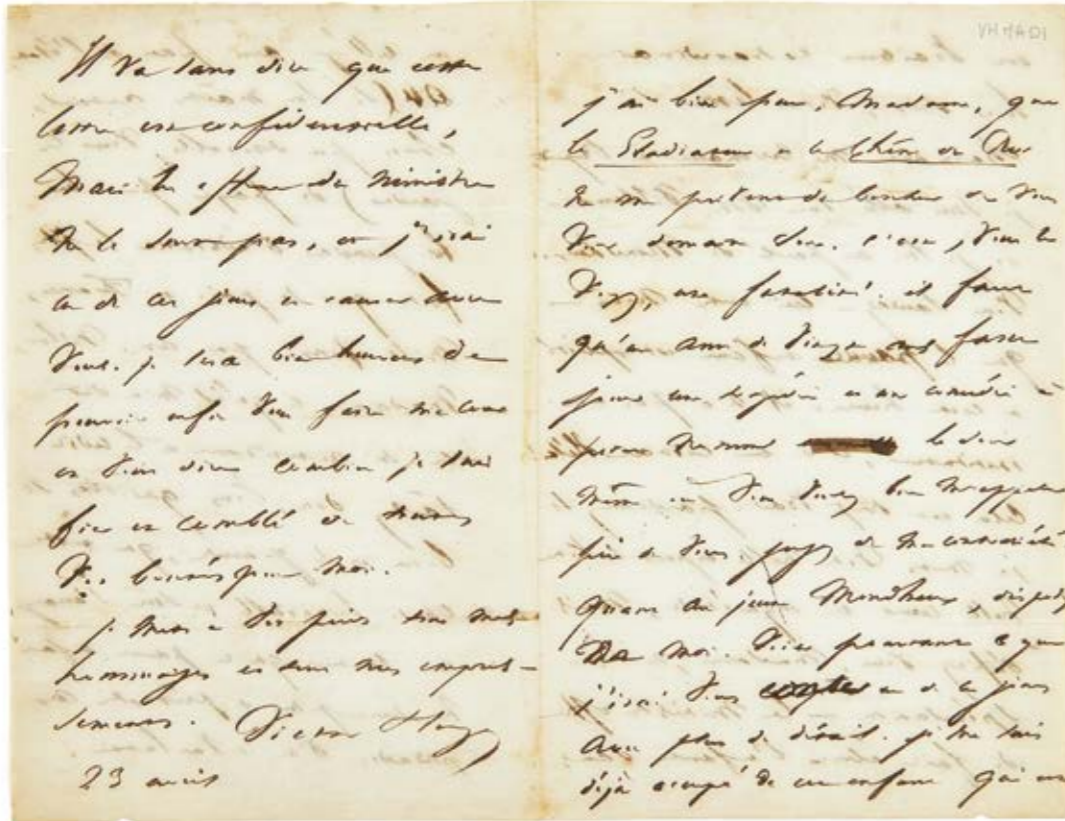 Il va sans dire que cette
lettre est confidentielle,
Mais les du Ministère
ne le sont pas, et j'irai
un de ces jours en causer avec
Vous. je serai bien heureux de
pouvoir enfin Vous faire ma cour
et Vous dire combien je suis
fier et comblé de toutes
Vos bontés pour moi.
je mets à Vos pieds tous mes
hommages et tous mes empres-
sements. Victor Hugo
23 avril
VHMAD1
j'ai bien peur, Madame, que
le Gladiateur et le Chêne du Roi
ne me privent du bonheur de Vous
Voir demain soir. c'est, Vous le
Voyez, une fatalité. il faut
qu'un ami de Vingt ans fasse
jouer une tragédie et une comédie à
le soir
même où Vous Voulez bien m'appeler
près de Vous. jugez de ma contrariété.
Quant au jeune Mondheux, disposez
De moi. Voici pourtant ce que
j'irai Vous conter un de ces jours
avec plus de détail. je me suis
déjà occupé de cet enfant qui est